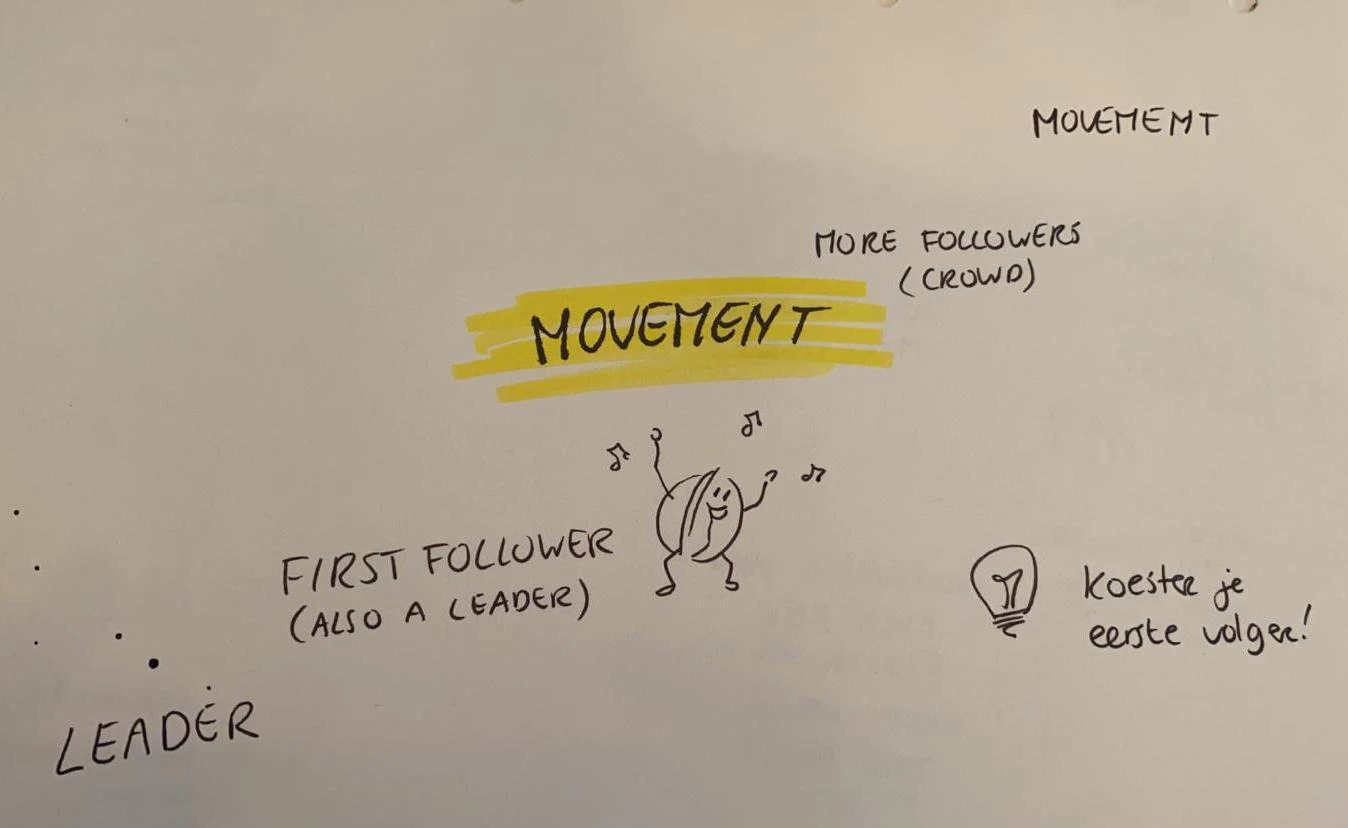 MOVEMENT
MORE FOLLOWERS
(CROWD)
MOVEMENT
FIRST FOLLOWER
(ALSO A LEADER)
koester je
eerste volger!
LEADER